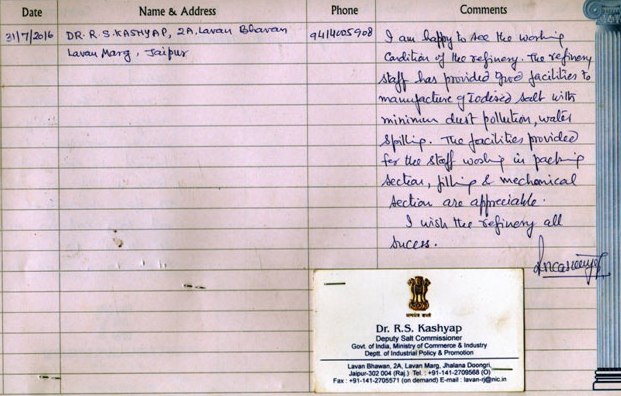 Date Name & Address Phone Comments
31/7/2016 DR. R.S. KASHYAP, 2A, Lavan Bhavan 9414005908
Lavan Marg, Jaipur
I am happy to see the working
Condition of the refinery. The refinery
staff has provided good facilities to
manufacture of Iodised salt with
minimum dust pollution, water
spilling. The facilities provided
for the staff working in packing
section, filling & mechanical
section are appreciable.
I wish the refinery all
success.
सत्यमेव जयते
Dr. R.S. Kashyap
Deputy Salt Commissioner
Govt. of India, Ministry of Commerce & Industry
Deptt. of Industrial Policy & Promotion
Lavan Bhawan, 2A, Lavan Marg, Jhalana Doongri,
Jaipur-302 004 (Raj.) Tel. : +91-141-2709568 (O)
Fax : +91-141-2705571 (on demand) E-mail : lavan-rj@nic.in